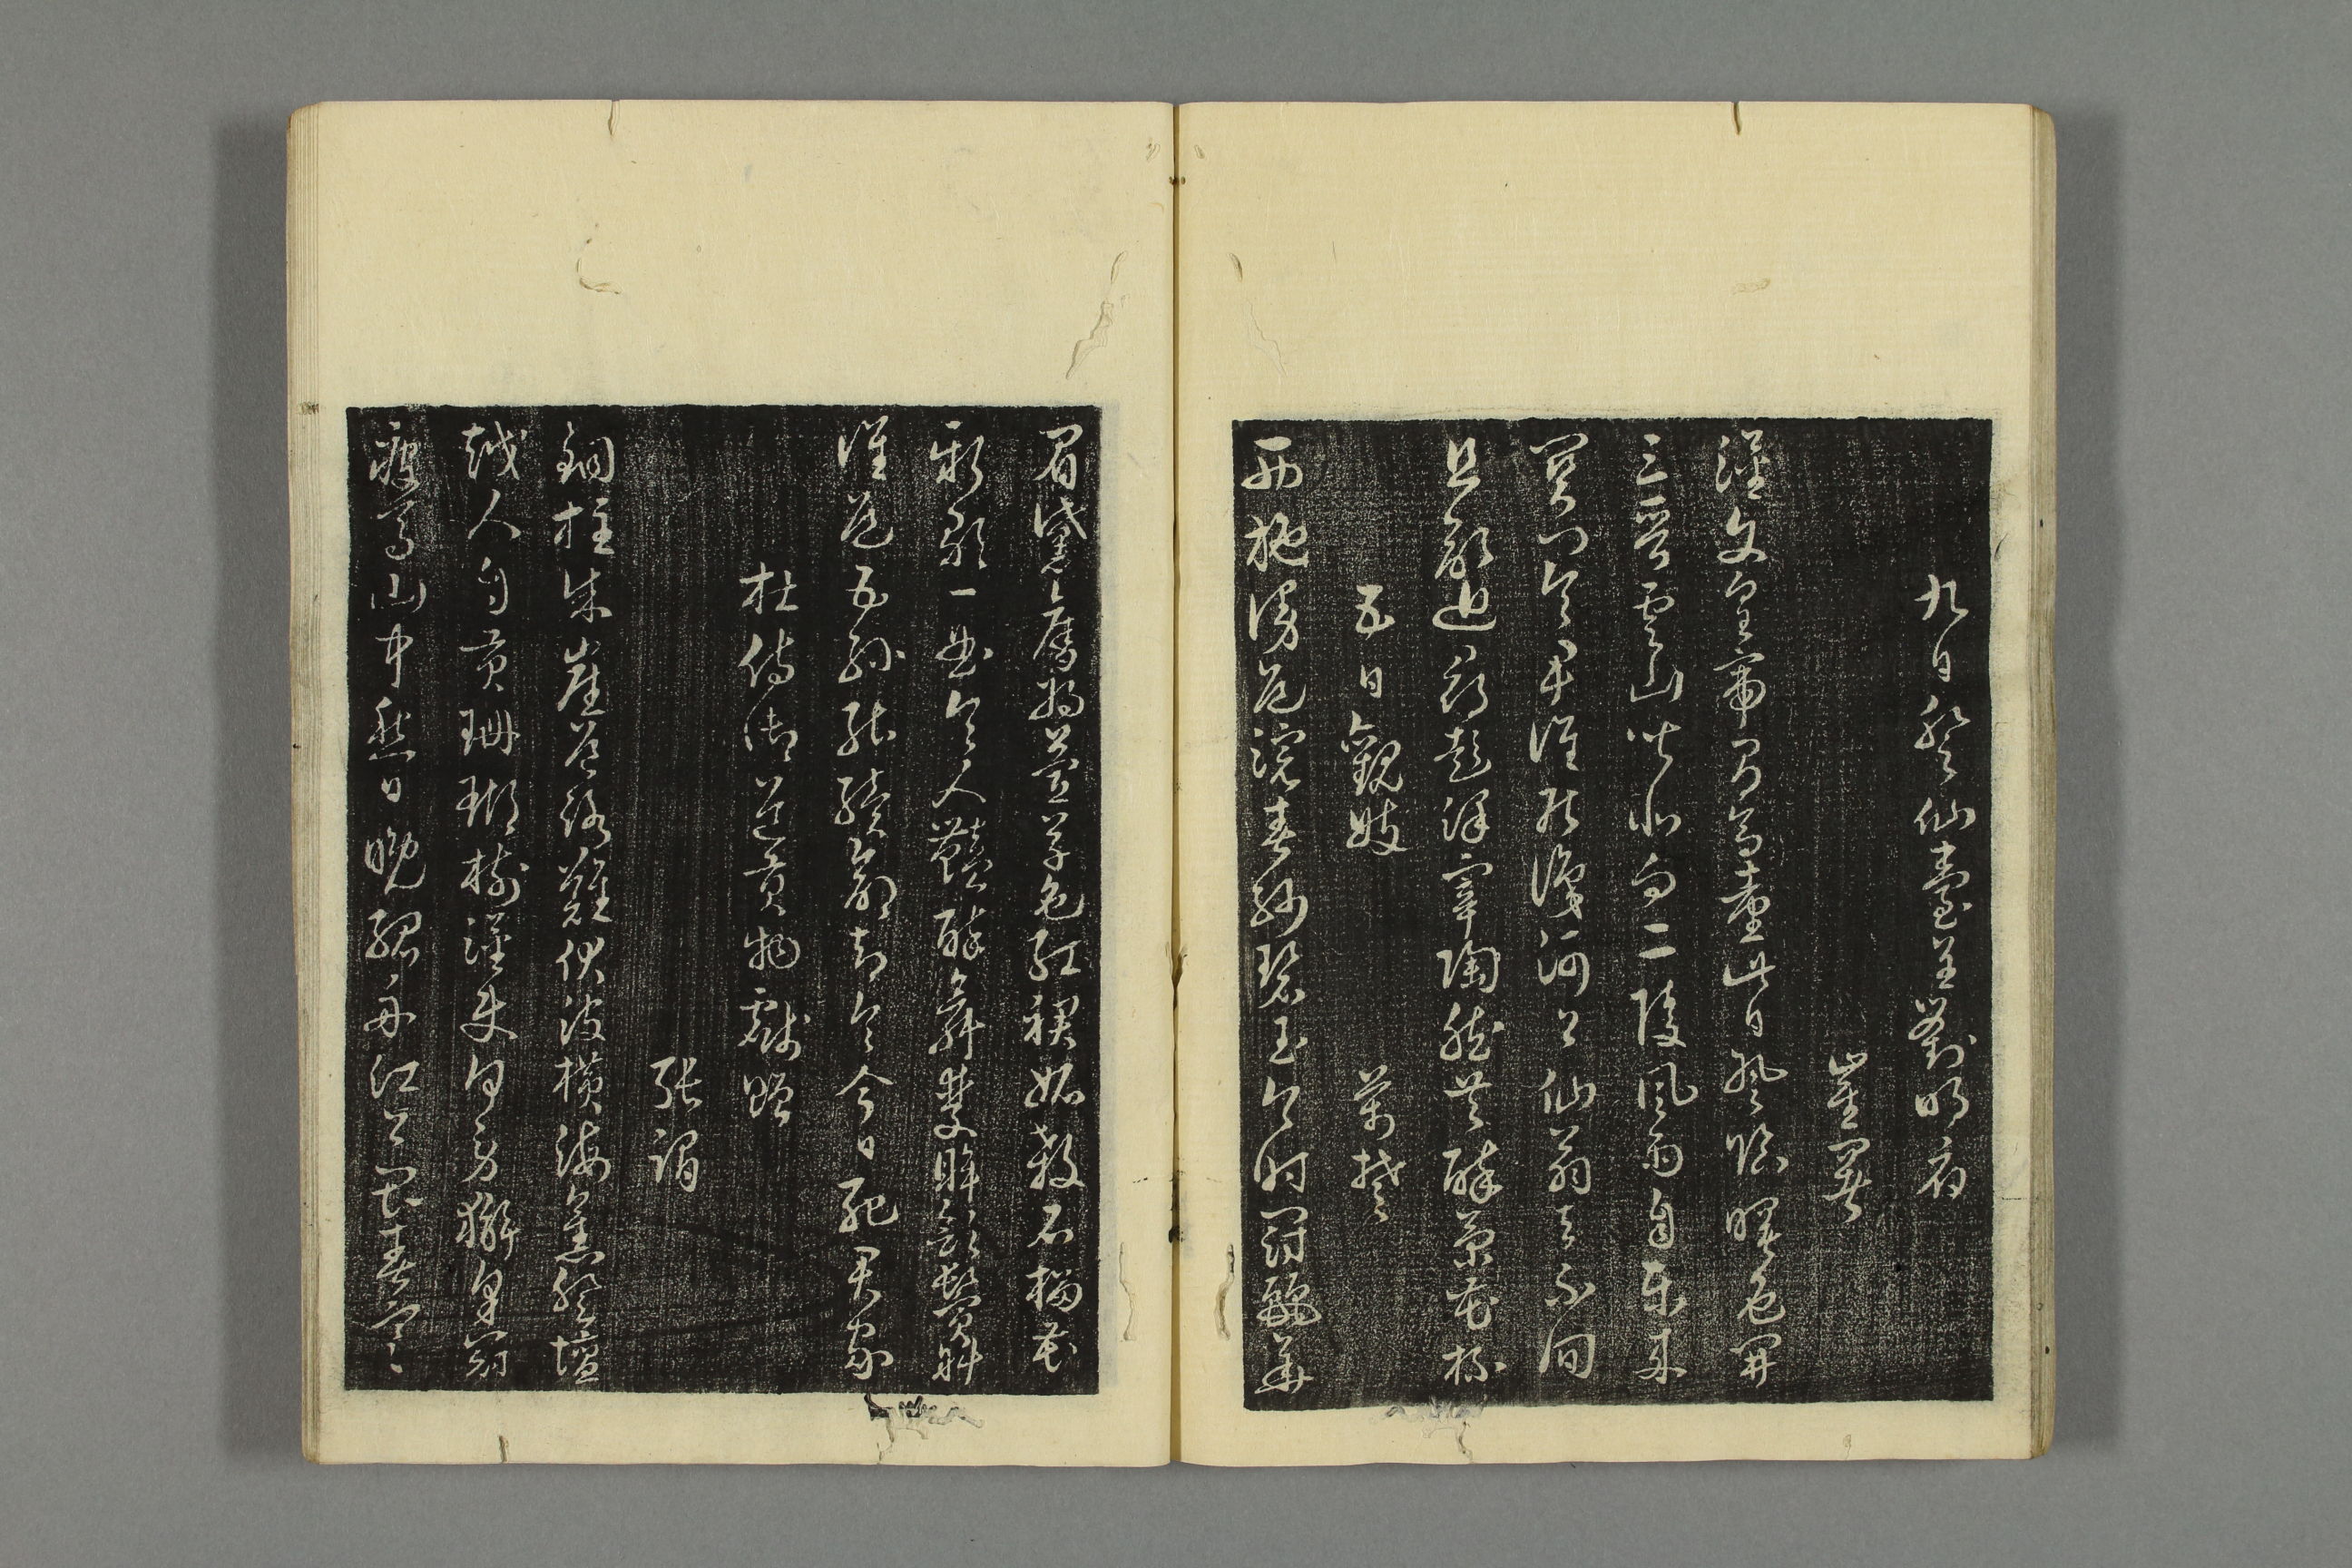 九日登仙臺呈劉明府
崔曙
漢文皇帝有高臺此日登臨曙色開
三晉雲山皆北向二陵風雨自東來
關門令尹誰能識河上仙翁去不回
且欲近尋彭澤宰陶然共醉菊花杯
五日觀妓 萬楚
西施謾道浣春紗碧玉今時鬪麗華
眉黛奪將萱草色紅裙妬殺石榴花
新歌一曲令人艷醉舞雙眸斂鬢斜
誰道五絲能續命却令今日死君家
杜侍御送貢物戲贈
張謂
銅柱朱崖道路難伏波橫海舊登壇
越人自貢珊瑚樹漢使何勞獬豸冠
疲馬山中愁日晚孤舟江上畏春寒